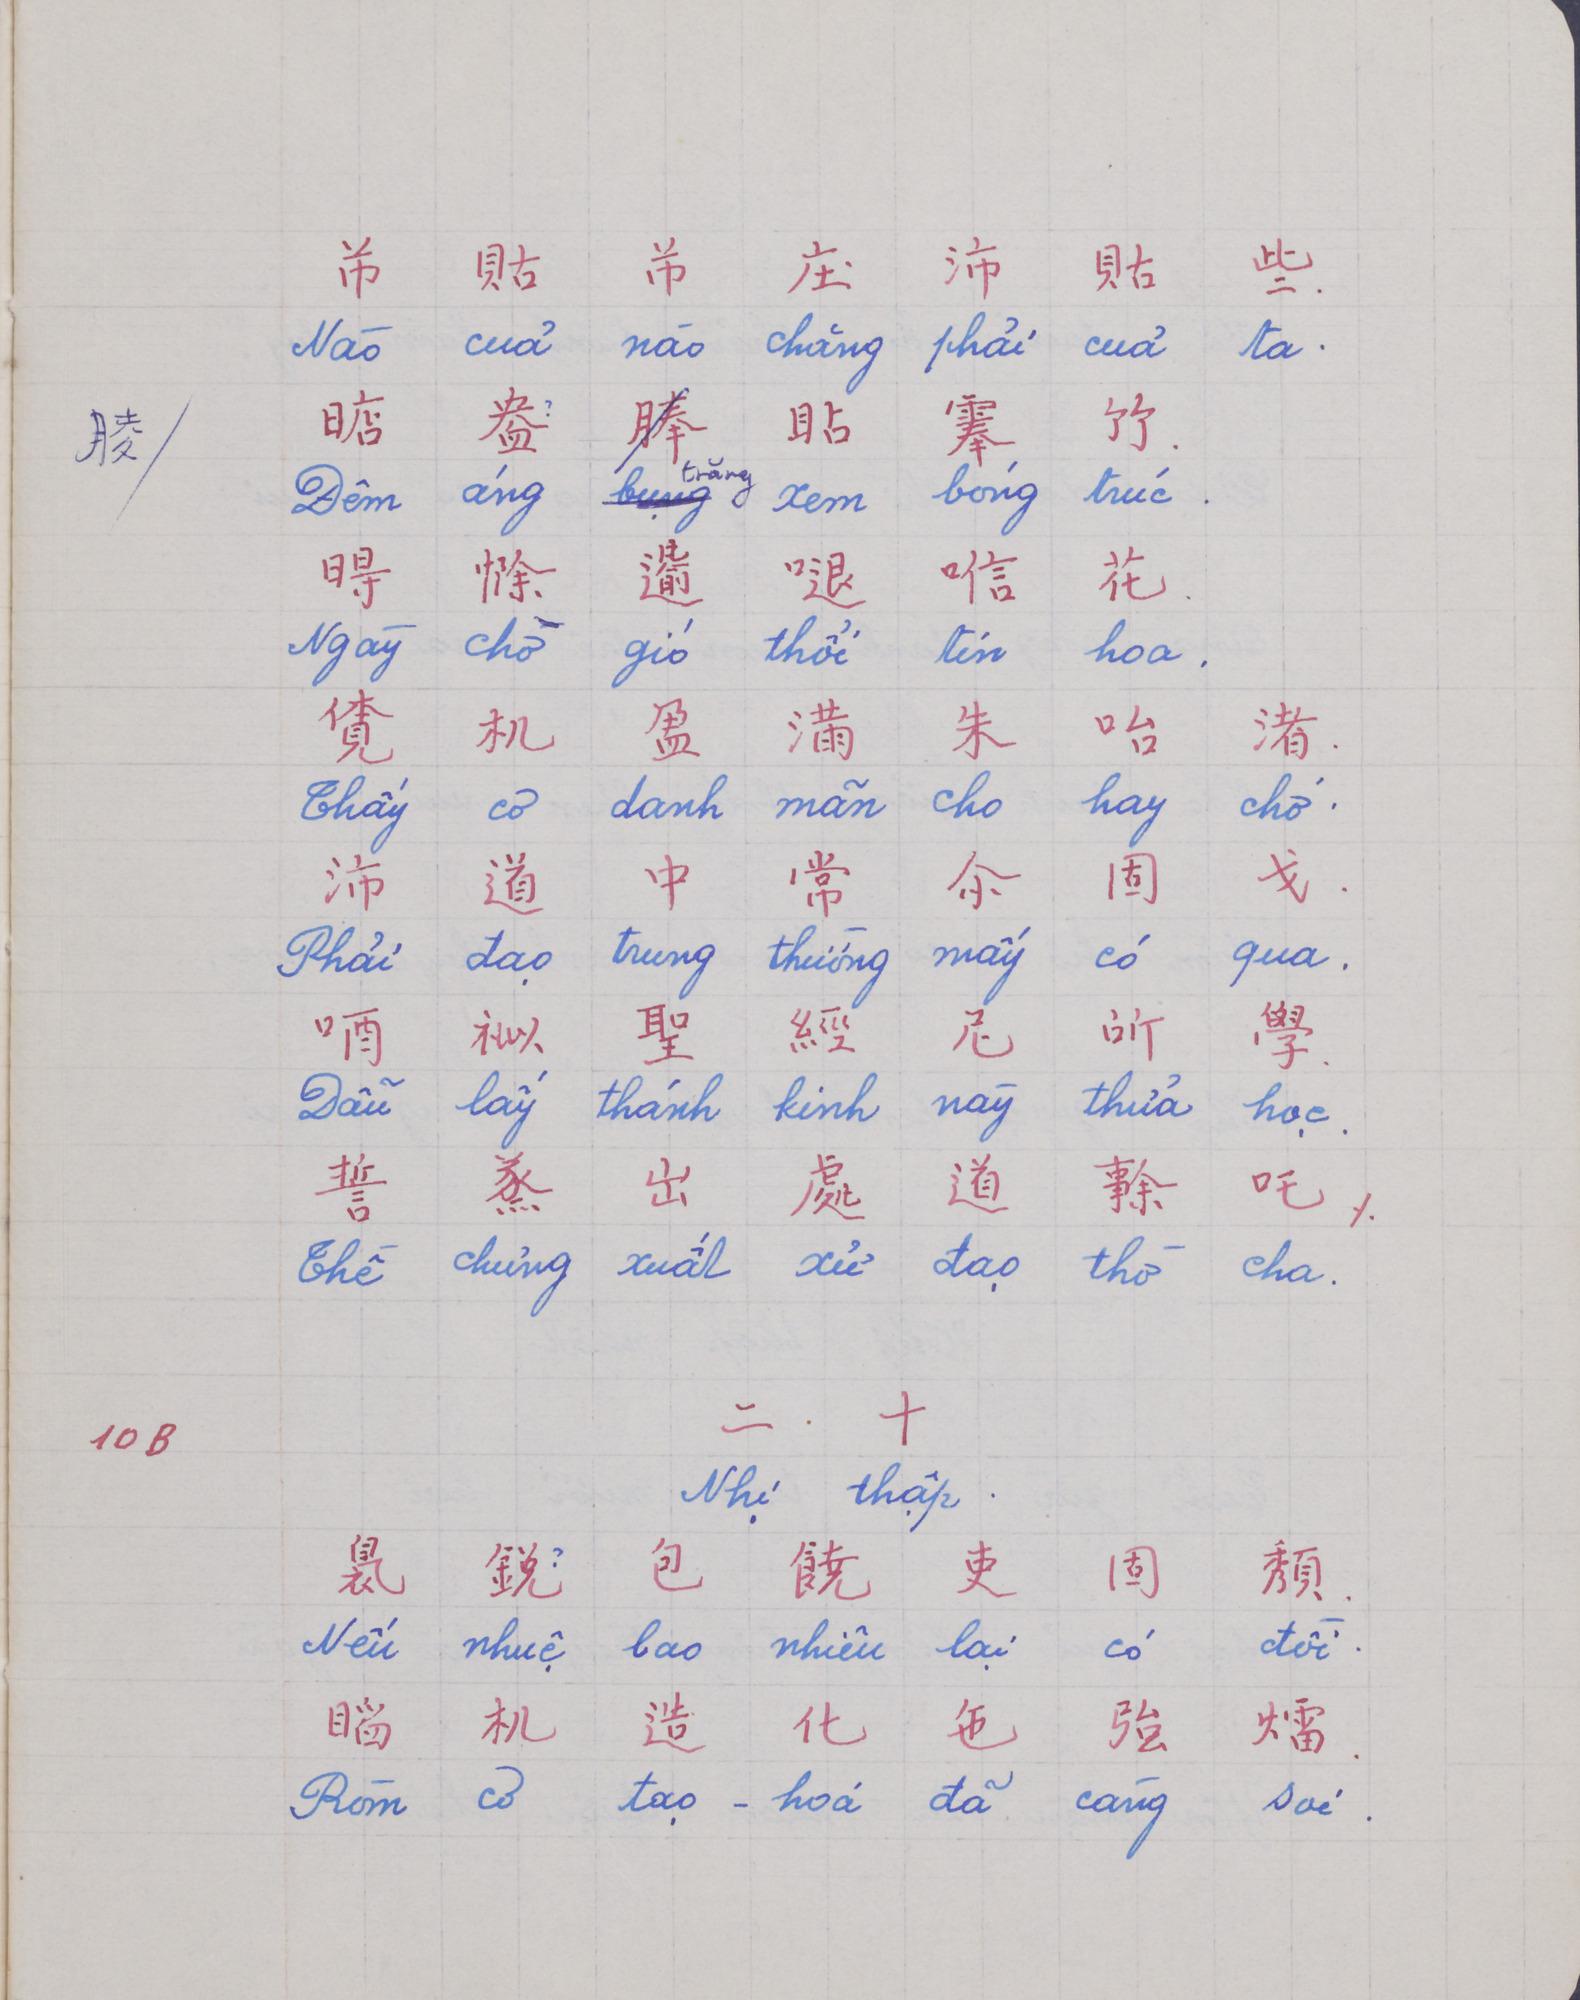 芾 貼 芾 庄 沛 貼 些.
Nào cuả nào chăng phải cuả ta.
盎? 竹.
Đêm áng bụng trăng xem bóng trúc.
花.
Ngày chờ gió thổi tín hoa.
覺 机 盈 滿 朱 咍 渚.
Thấy cơ danh mãn cho hay chớ.
沛 道 中 常 余 固 戈.
Phải đạo trung thường mấy có qua.
唒 聖 經 尼 所 學.
Dẫu lấy thánh kinh này thửa học.
誓 蒸 出 處 道 吒 ٪.
Thề chưng xuất xử đạo thờ cha.
10 B
二 . 十
Nhị thập.
鋭? 包 饒 吏 固 頽.
Nếu nhuệ bao nhiêu lại có đồi.
机 造 化 㐌 強 㷟.
Ròm cơ tạo - hoá đã càng soi.